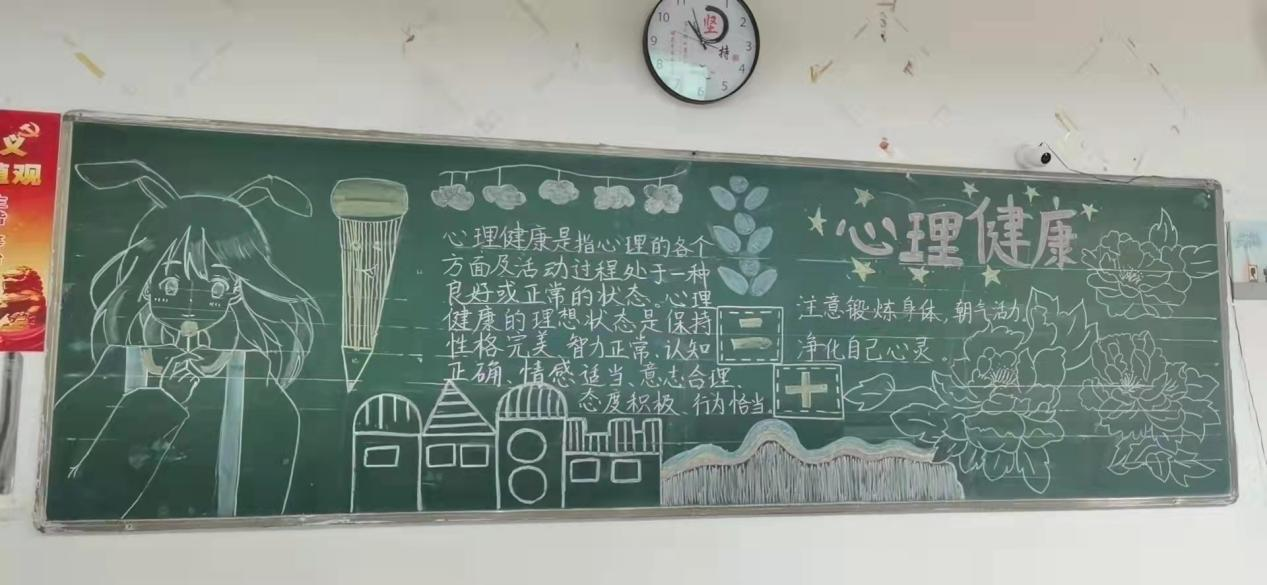 义
值观
坚
持
10
11
2
3
4
5
6
7
8
9
心理健康是指心理的各个
方面及活动过程处于一种
良好或正常的状态。心理
健康的理想状态是保持
性格完美、智力正常、认知
正确、情感适当、意志合理、
态度积极、行为恰当。
心理健康
注意锻炼身体,朝气活力,
净化自己心灵。